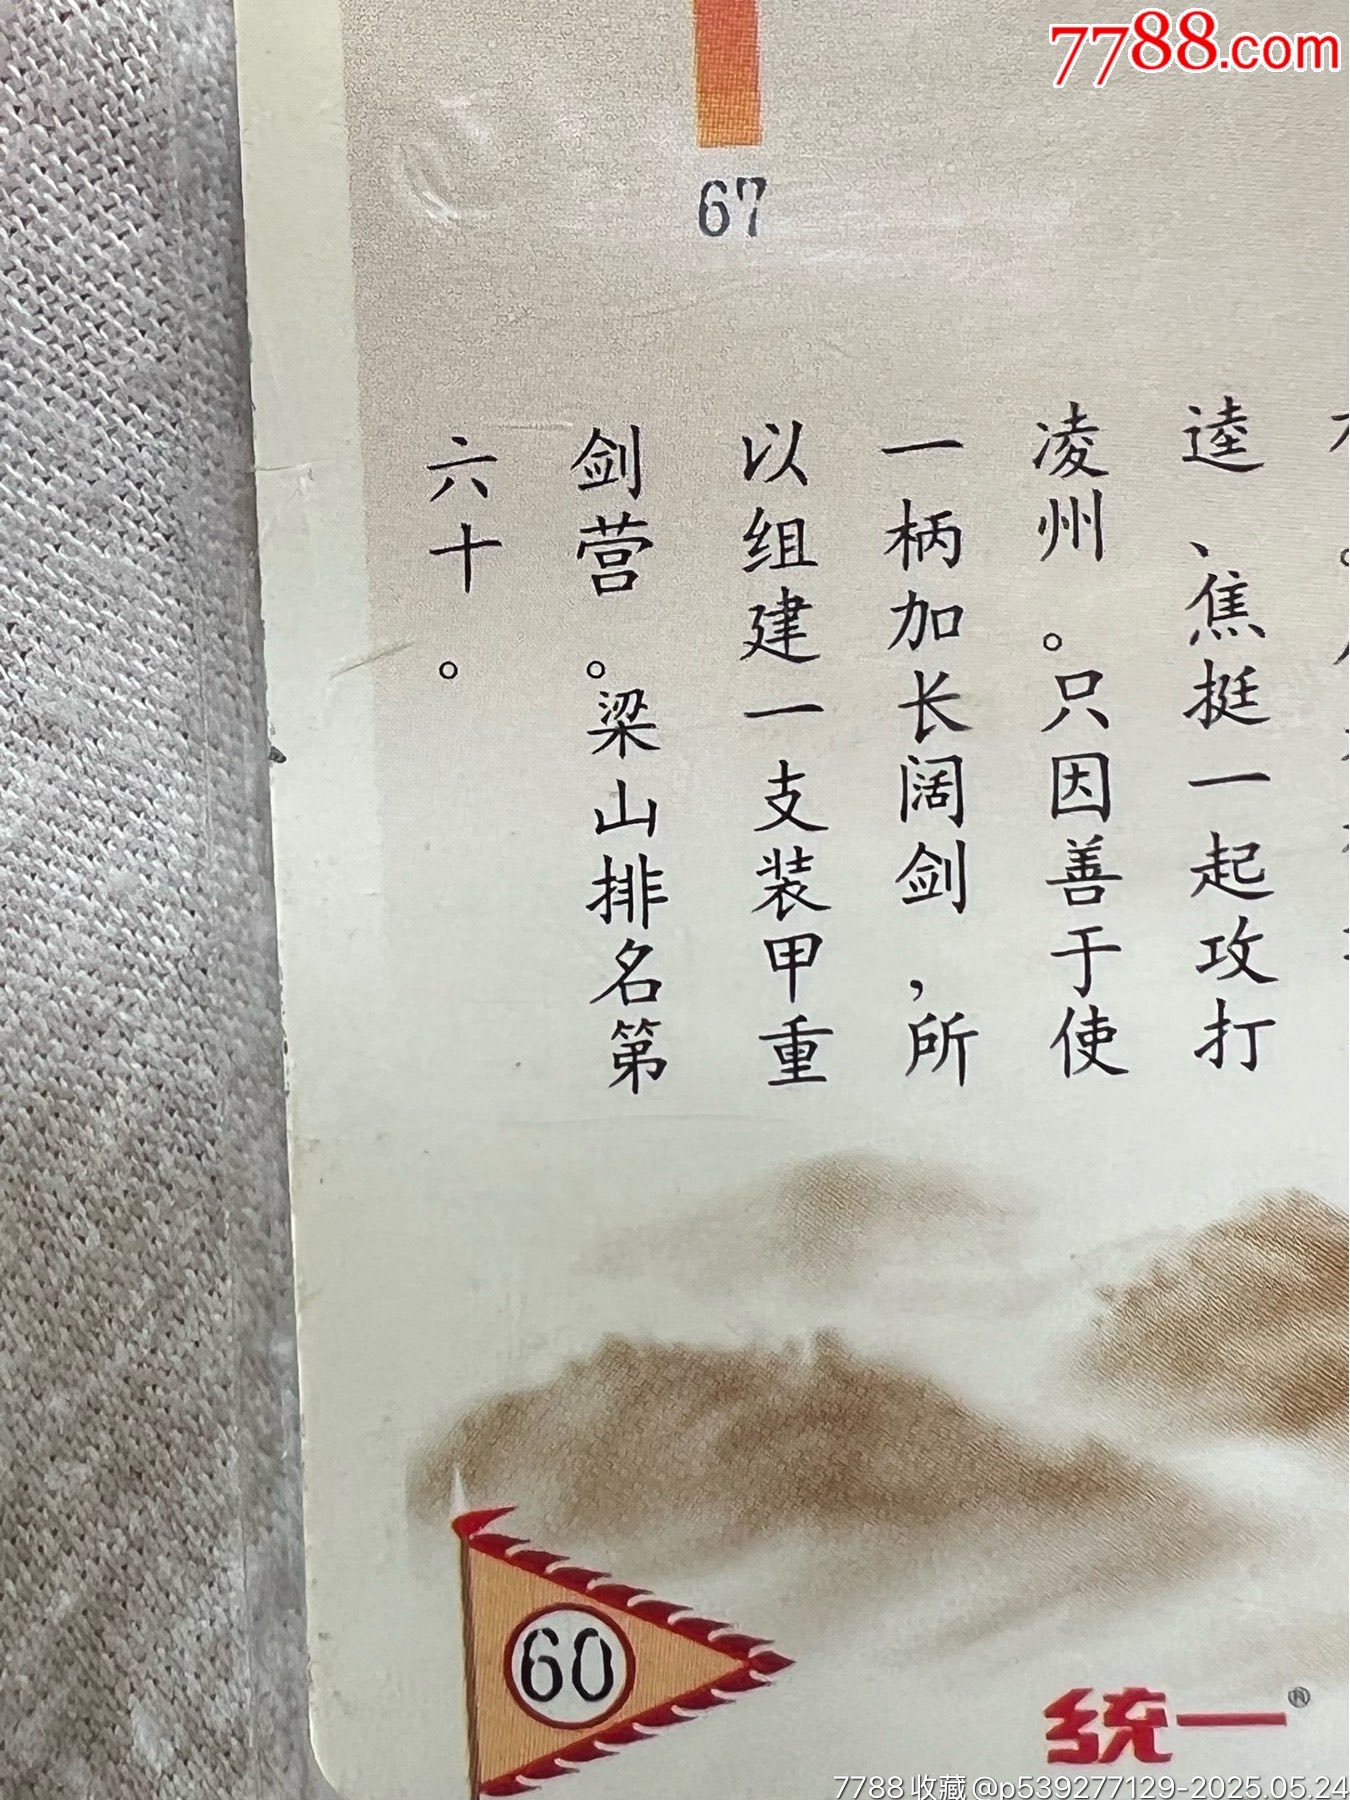 7788.com
67
逵、焦挺一起攻打
凌州。只因善于使
一柄加长阔剑,所
以组建一支装甲重
剑营。梁山排名第
六十。
60
统一®
7788收藏@p539277129-2025.05.24